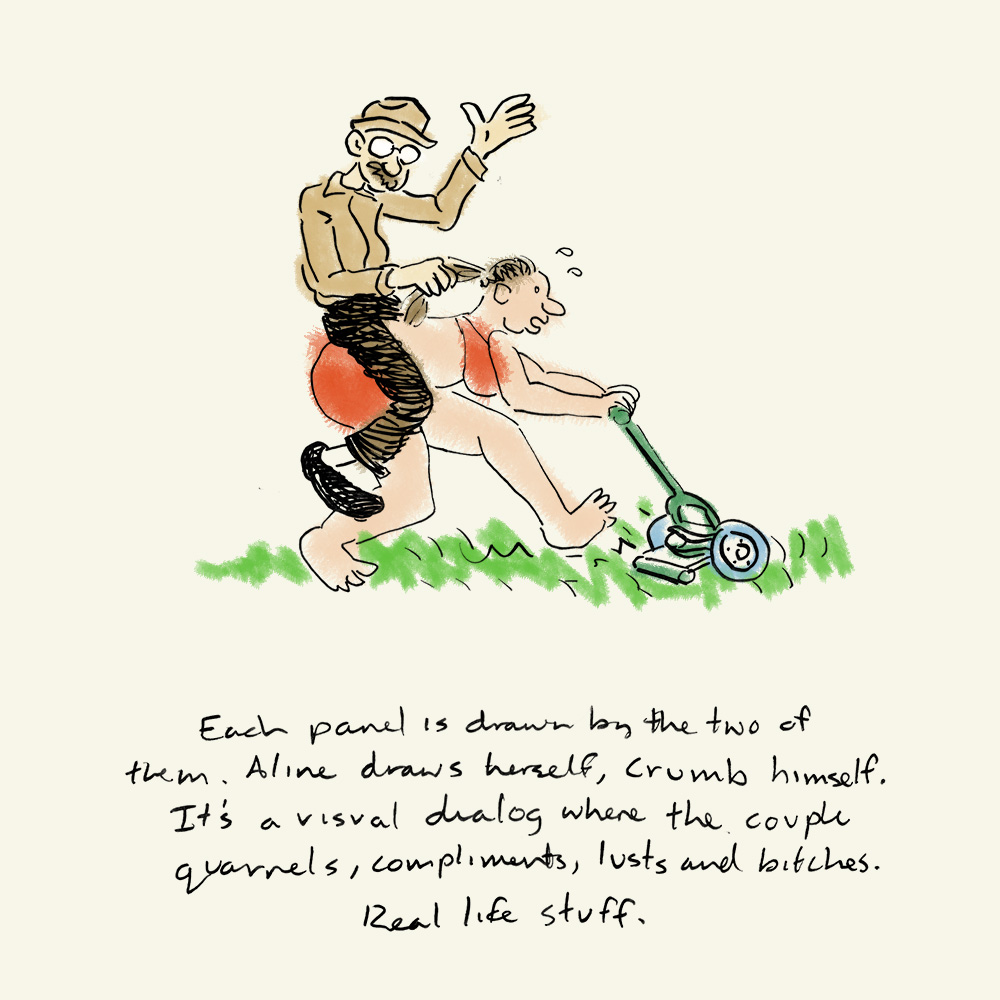 Each panel is drawn by the two of
them. Aline draws herself, Crumb himself.
It's a visual dialog where the couple
quarrels, compliments, lusts and bitches.
Real life stuff.